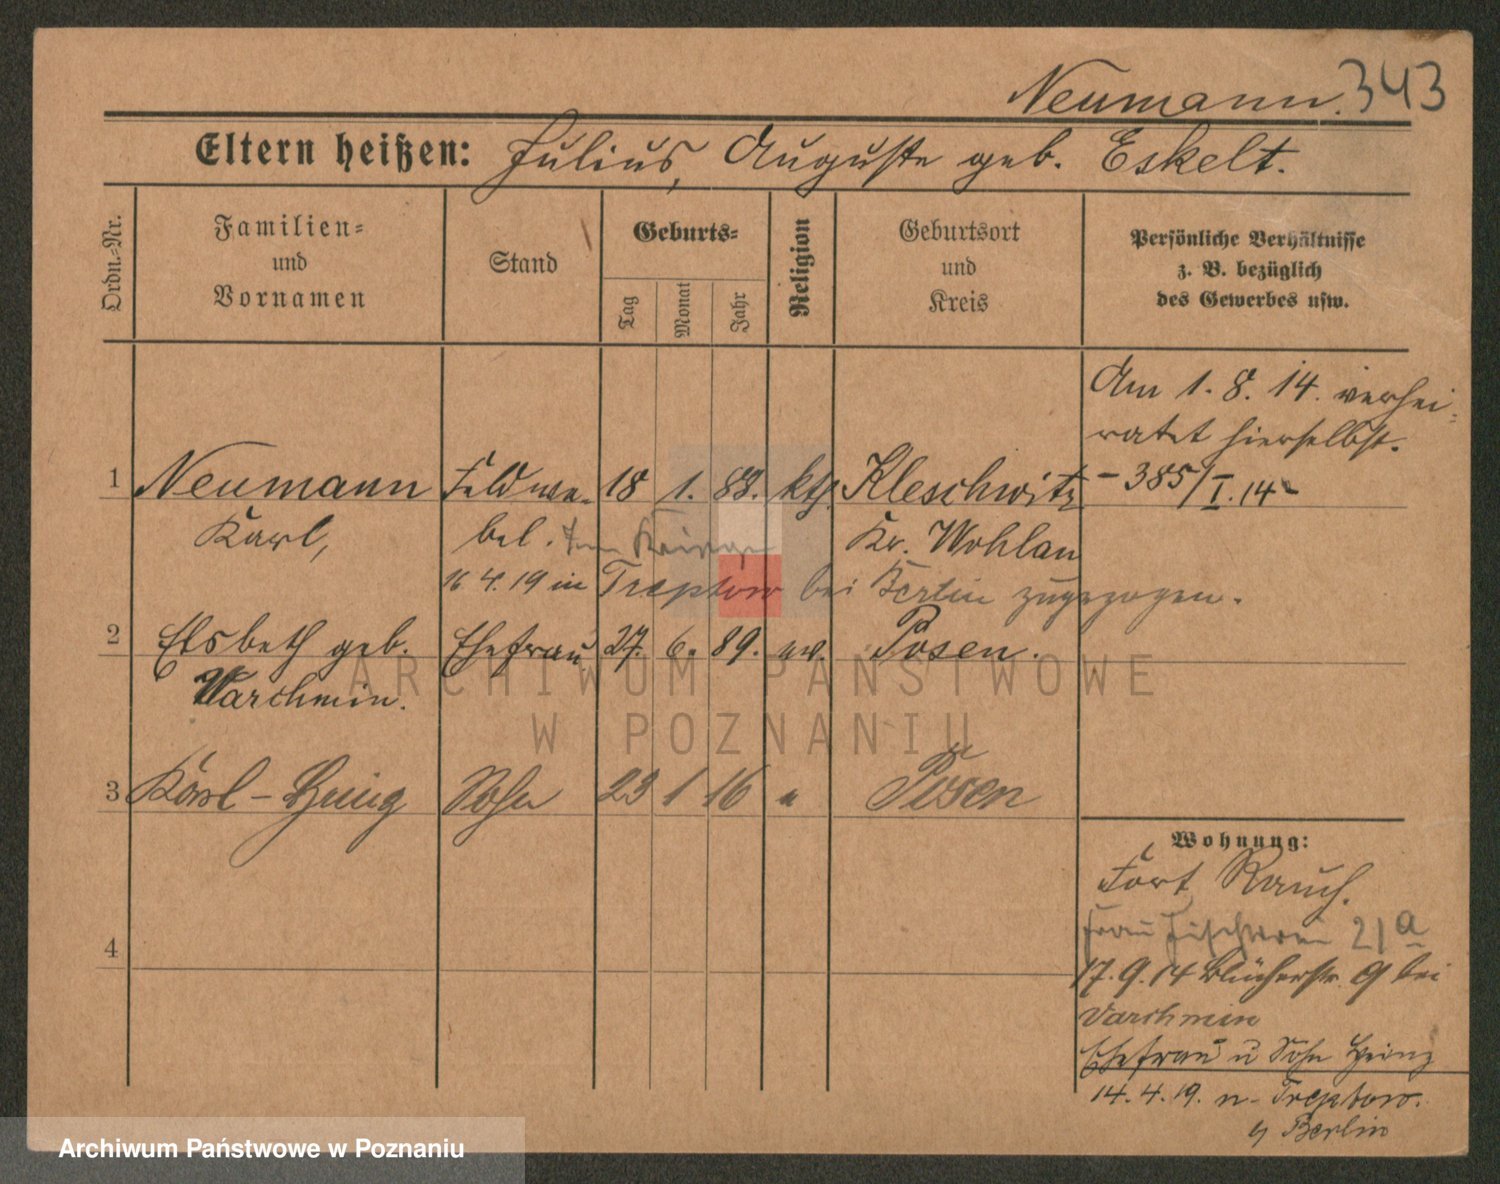 Neumann. 343
Eltern heißen: Julius, Auguste geb. Eskelt.
Ordn.-Nr.
Familien-
und
Vornamen
Stand
Geburts-
Tag
Monat
Jahr
Religion
Geburtsort
und
Kreis
Persönliche Verhältnisse
z. B. bezüglich
des Gewerbes usw.
Am 1. 8. 14. verhei-
ratet hierselbst.
- 385/I. 14 -
1 Neumann Feldwe- 18 1. 88. kth. Kleschwitz
Karl, bel. Kr. Wohlau
16 4. 19 in Treptow bei Berlin zugezogen.
2 Elsbeth geb. Ehefrau 27. 6. 89. ev. Posen.
Varchmin.
3 Karl-Heinz Sohn 23 1 16 " Posen
4
Wohnung:
Fort Rauch.
Frau 21a
17. 9. 14 Blücherstr. 9 bei
Varchmin
Ehefrau u Sohn Heinz
14. 4. 19. n. Treptow.
b/ Berlin
ARCHIWUM PAŃSTWOWE
W POZNANIU
Archiwum Państwowe w Poznaniu